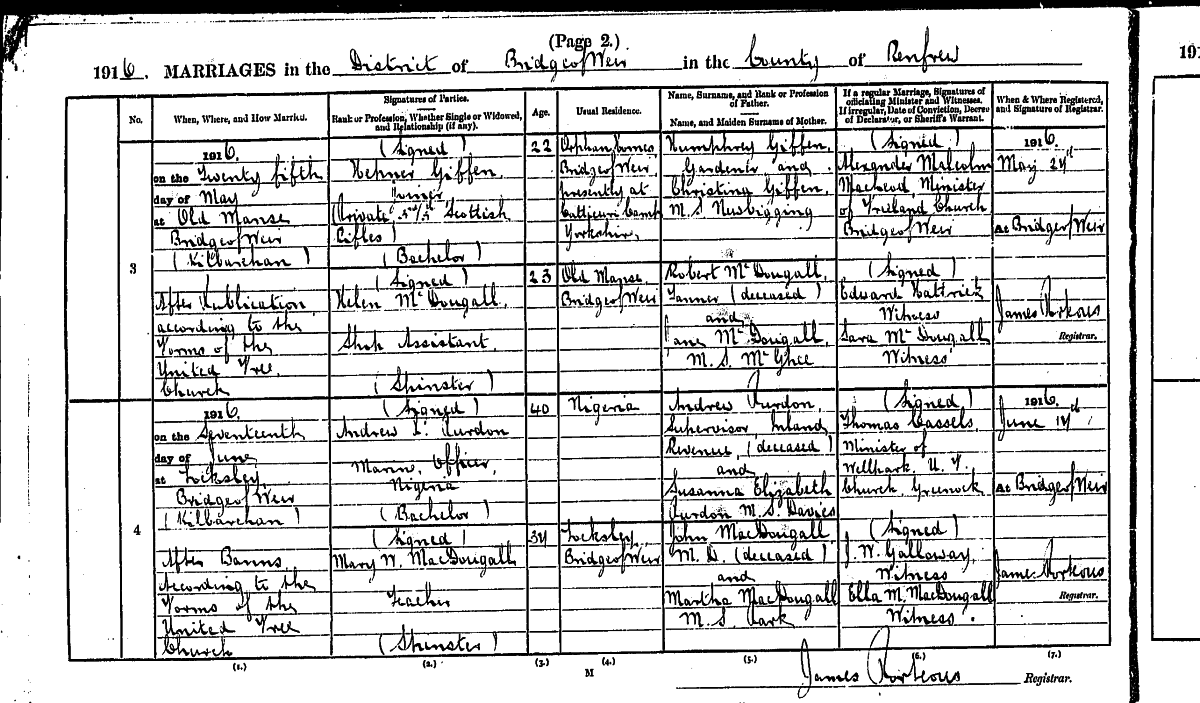 (Page 2.)
1916. MARRIAGES in the District of Bridge of Weir in the County of Renfrew
191
No.
When, Where, and How Married.
Signatures of Parties.
Rank or Profession, Whether Single or Widowed, and Relationship (if any).
Age.
Usual Residence.
Name, Surname, and Rank or Profession of Father.
Name, and Maiden Surname of Mother.
If a regular Marriage, Signatures of officiating Minister and Witnesses. If irregular, Date of Conviction, Decree of Declarator, or Sheriff's Warrant.
When & Where Registered, and Signature of Registrar.
3
1916.
on the Twenty fifth
day of May
at Old Manse
Bridge of Weir
(Kilbarchan)
After Publication
according to the
Forms of the
United Free
Church
(Signed)
Giffen.
Joiner
(Private Scottish
Rifles)
(Bachelor)
(Signed)
Helen McDougall.
Shop Assistant.
(Spinster)
22
23
Orphan Homes
Bridge of Weir
presently at
Camp
Yorkshire,
Old Manse
Bridge of Weir
Humphrey Giffen,
Gardener and
Christina Giffen,
M. S. Newbigging
Robert McDougall,
Tanner (deceased)
and
Jane McDougall,
M. S. McGhee
(Signed)
Alexander Malcolm
MacLeod Minister
of Freeland Church
Bridge of Weir
(Signed)
Edward Hattrick
Witness
Sara McDougall
Witness
1916.
May 27th
at Bridge of Weir
James Porteous
Registrar.
4
1916.
on the Seventeenth
day of June
at Locksley,
Bridge of Weir
(Kilbarchan)
After Banns
According to the
Forms of the
United Free
Church
(Signed)
Andrew Purdon
Marine Officer,
Nigeria
(Bachelor)
(Signed)
Mary W. MacDougall
Teacher
(Spinster)
40
34
Nigeria
Locksley,
Bridge of Weir
Andrew Purdon,
Supervisor, Inland
Revenue, (deceased)
and
Susanna Elizabeth
Purdon M. S. Davies
John MacDougall
M. D. (deceased)
and
Martha MacDougall
M. S. Park
(Signed)
Thomas Cassels,
Minister of
Wellpark U. F.
Church, Greenock
(Signed)
J. W. Galloway,
Witness
Ella M. MacDougall
Witness.
1916.
June
at Bridge of Weir
James Porteous
Registrar.
(1.)
(2.)
(3.)
(4.)
(5.)
(6.)
(7.)
M
James Porteous Registrar.